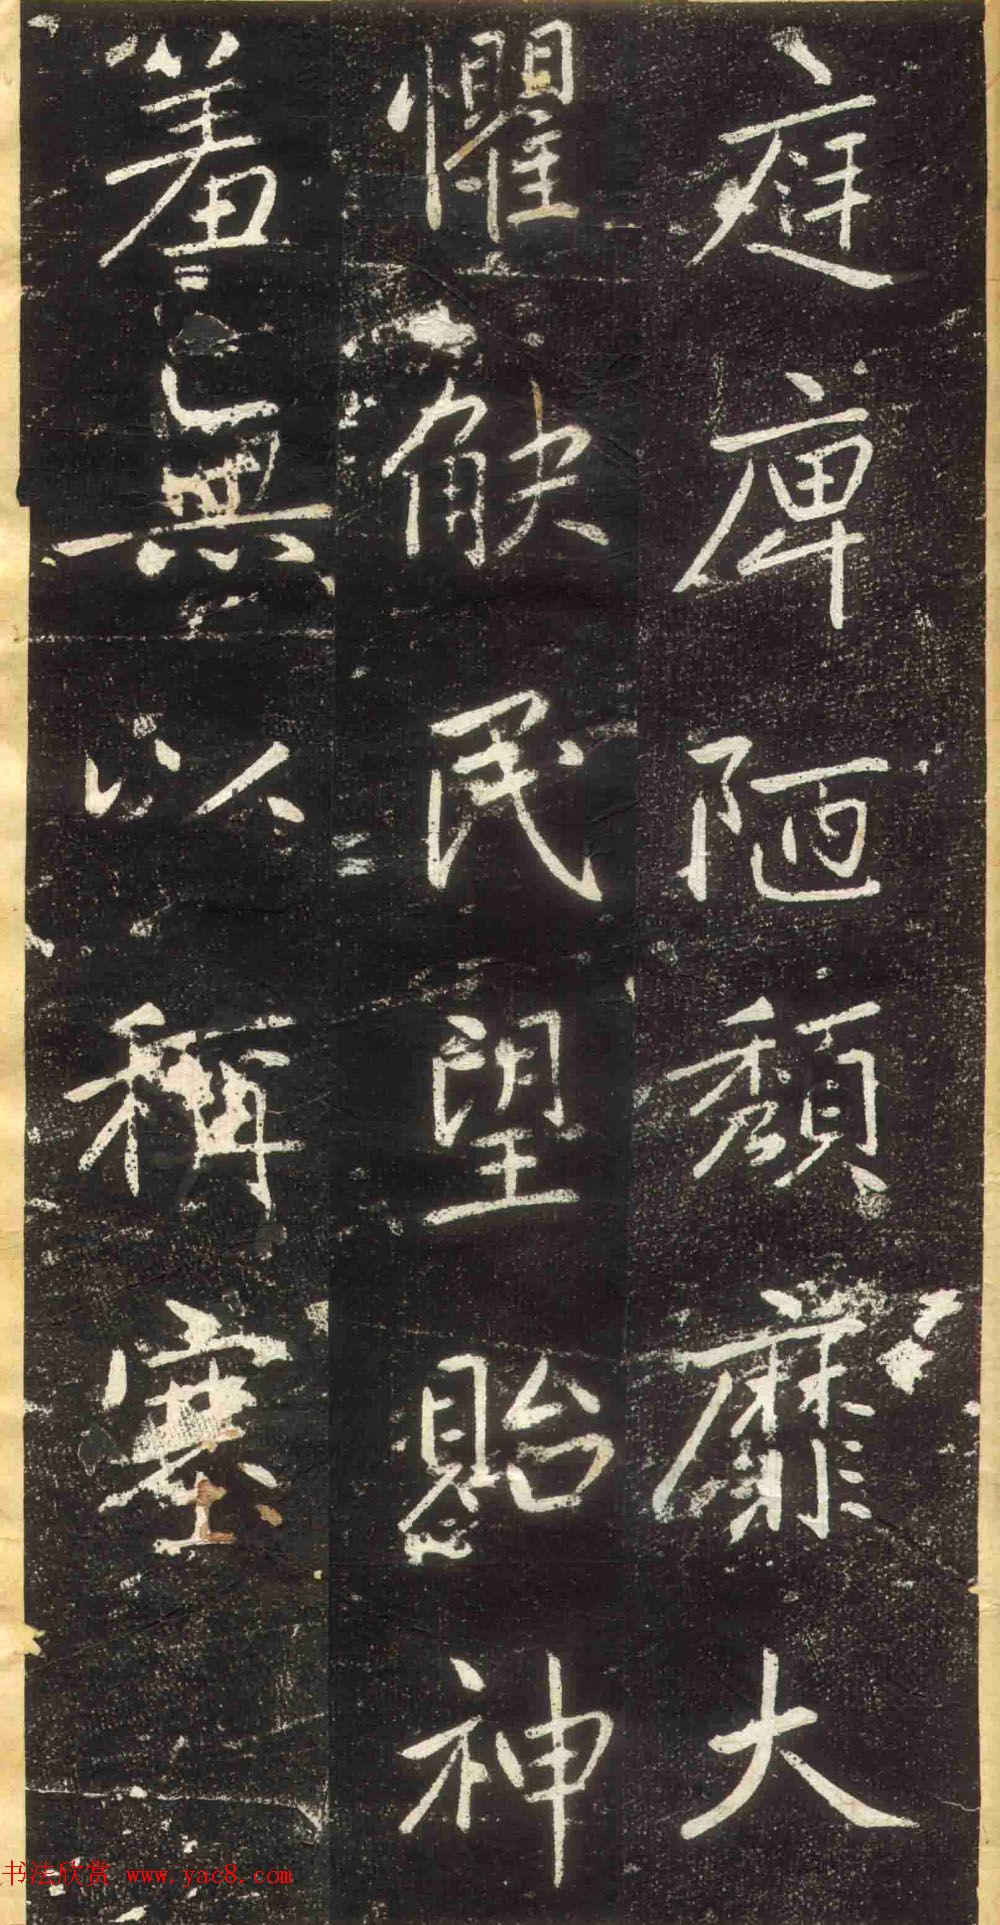 庭庳陋頽靡大
懼觖民望貽神
羞無以稱塞
书法欣赏 www.yac8.com